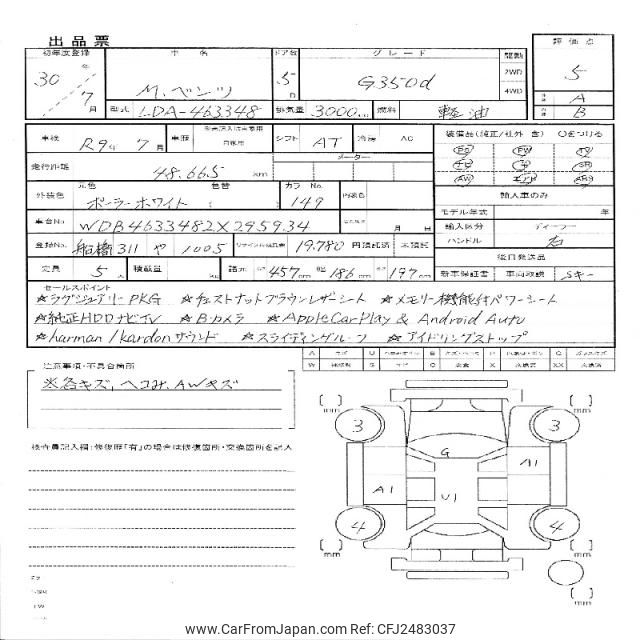 出品票
初年度登録 車名 ドア数 グレード 駆動 評価点
30年 7月 M.ベンツ 5D G350d 2WD 4WD 5
型式 LDA-463348 排気量 3000cc 燃料 軽油 A B
車検 R9年 7月 車歴 自家用 シフト AT 冷房 AC 装備品(純正/社外 含) ○をつける
走行距離 48.665 km メーター
外装色 元色 ポーラーホワイト 色替 カラーNo. 149 内装色 輸入車のみ
モデル年式 年
車台No WDB4633482X295934 月 日 輸入区分 ディーラー
登録No 船橋 311 や 1005 リサイクル預託金 19.780 円預託済 未預託 ハンドル 右
後日発送品
定員 5人 積載量 kg 諸元 457cm 186cm 197cm 新車保証書 車両取説 Sキー
セールスポイント
☆ラグジュアリーPKG ☆チェストナットブラウンレザーシート ☆メモリー機能付パワーシート
☆純正HDDナビTV ☆Bカメラ ☆AppleCarPlay & Android Auto
☆harman/kardonサウンド ☆スライディングルーフ ☆アイドリングストップ
注意事項・不具合箇所
※各キズ、ヘコみ、AWキズ
検査員記入欄:修復歴「有」の場合は修復箇所・交換箇所を記入
mm mm
3 3
G
A1
A1 U1
4 4
mm mm
mm
www.CarFromJapan.com Ref: CFJ2483037